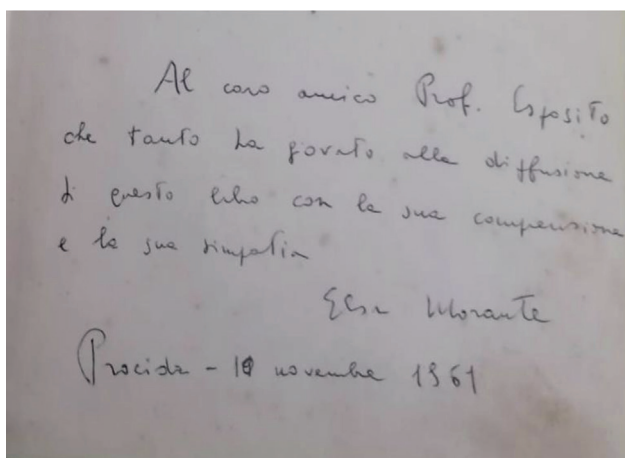 Al caro amico Prof. Esposito
che tanto ha giovato alla diffusione
di questo libro con la sua comprensione
e la sua simpatia
Elsa Morante
Procida - novembre 1961